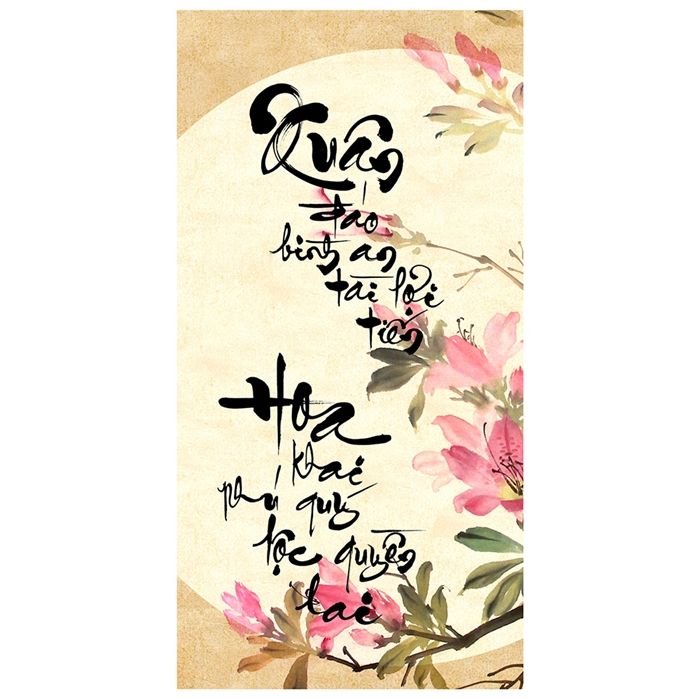 Xuân
đáo
bình an
tài lợi
tiến
Hoa
khai
phú quý
lộc quyền
lai